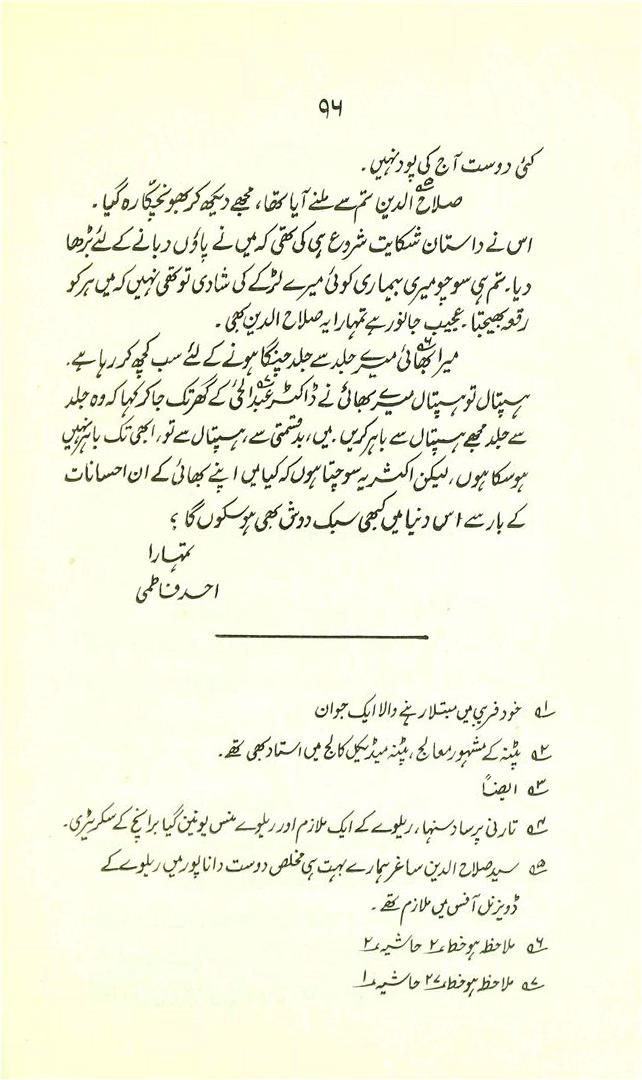 ۹۶
کئی دوست آج کی پود نہیں۔
صلاح الدین۵ تم سے ملنے آیا تھا، مجھے دیکھ کر بھونچکا رہ گیا۔
اس نے داستان شکایت شروع ہی کی تھی کہ میں نے پاؤں دبانے کے لئے بڑھا
دیا۔ تم ہی سوچو میری بیماری کوئی میرے لڑکے کی شادی تو تھی نہیں کہ میں ہر کو
رقعہ بھیجتا۔ عجیب جانور ہے تمہارا یہ صلاح الدین بھی۔
میرا بھائی۶ میرے جلد سے جلد چنگا ہونے کے لئے سب کچھ کر رہا ہے۔
ہسپتال تو ہسپتال میرے بھائی نے ڈاکٹر عبدالحئ۷ کے گھر تک جا کر کہا کہ وہ جلد
سے جلد مجھے ہسپتال سے باہر کریں۔ میں، بدقسمتی سے، ہسپتال سے تو، ابھی تک باہر نہیں
ہو سکا ہوں، لیکن اکثر یہ سوچتا ہوں کہ کیا میں اپنے بھائی کے ان احسانات
کے بار سے اس دنیا میں کبھی سبک دوش بھی ہو سکوں گا ؟
تمہارا
احمد فاطمی
۱ خود فریبی میں مبتلا رہنے والا ایک جوان
۲ پٹنہ کے مشہور معالج، پٹنہ میڈیکل کالج میں استاد بھی تھے۔
۳ ایضاً
۴ تارنی پرساد سنہا، ریلوے کے ایک ملازم اور ریلوے منس یونین گیا برانچ کے سکریٹری۔
۵ سید صلاح الدین ساغر ہمارے بہت ہی مخلص دوست دانا پور میں ریلوے کے
ڈویزنل آفس میں ملازم تھے۔
۶ ملاحظہ ہو خط ۲ حاشیہ ۲
۷ ملاحظہ ہو خط ۲۷ حاشیہ ۱